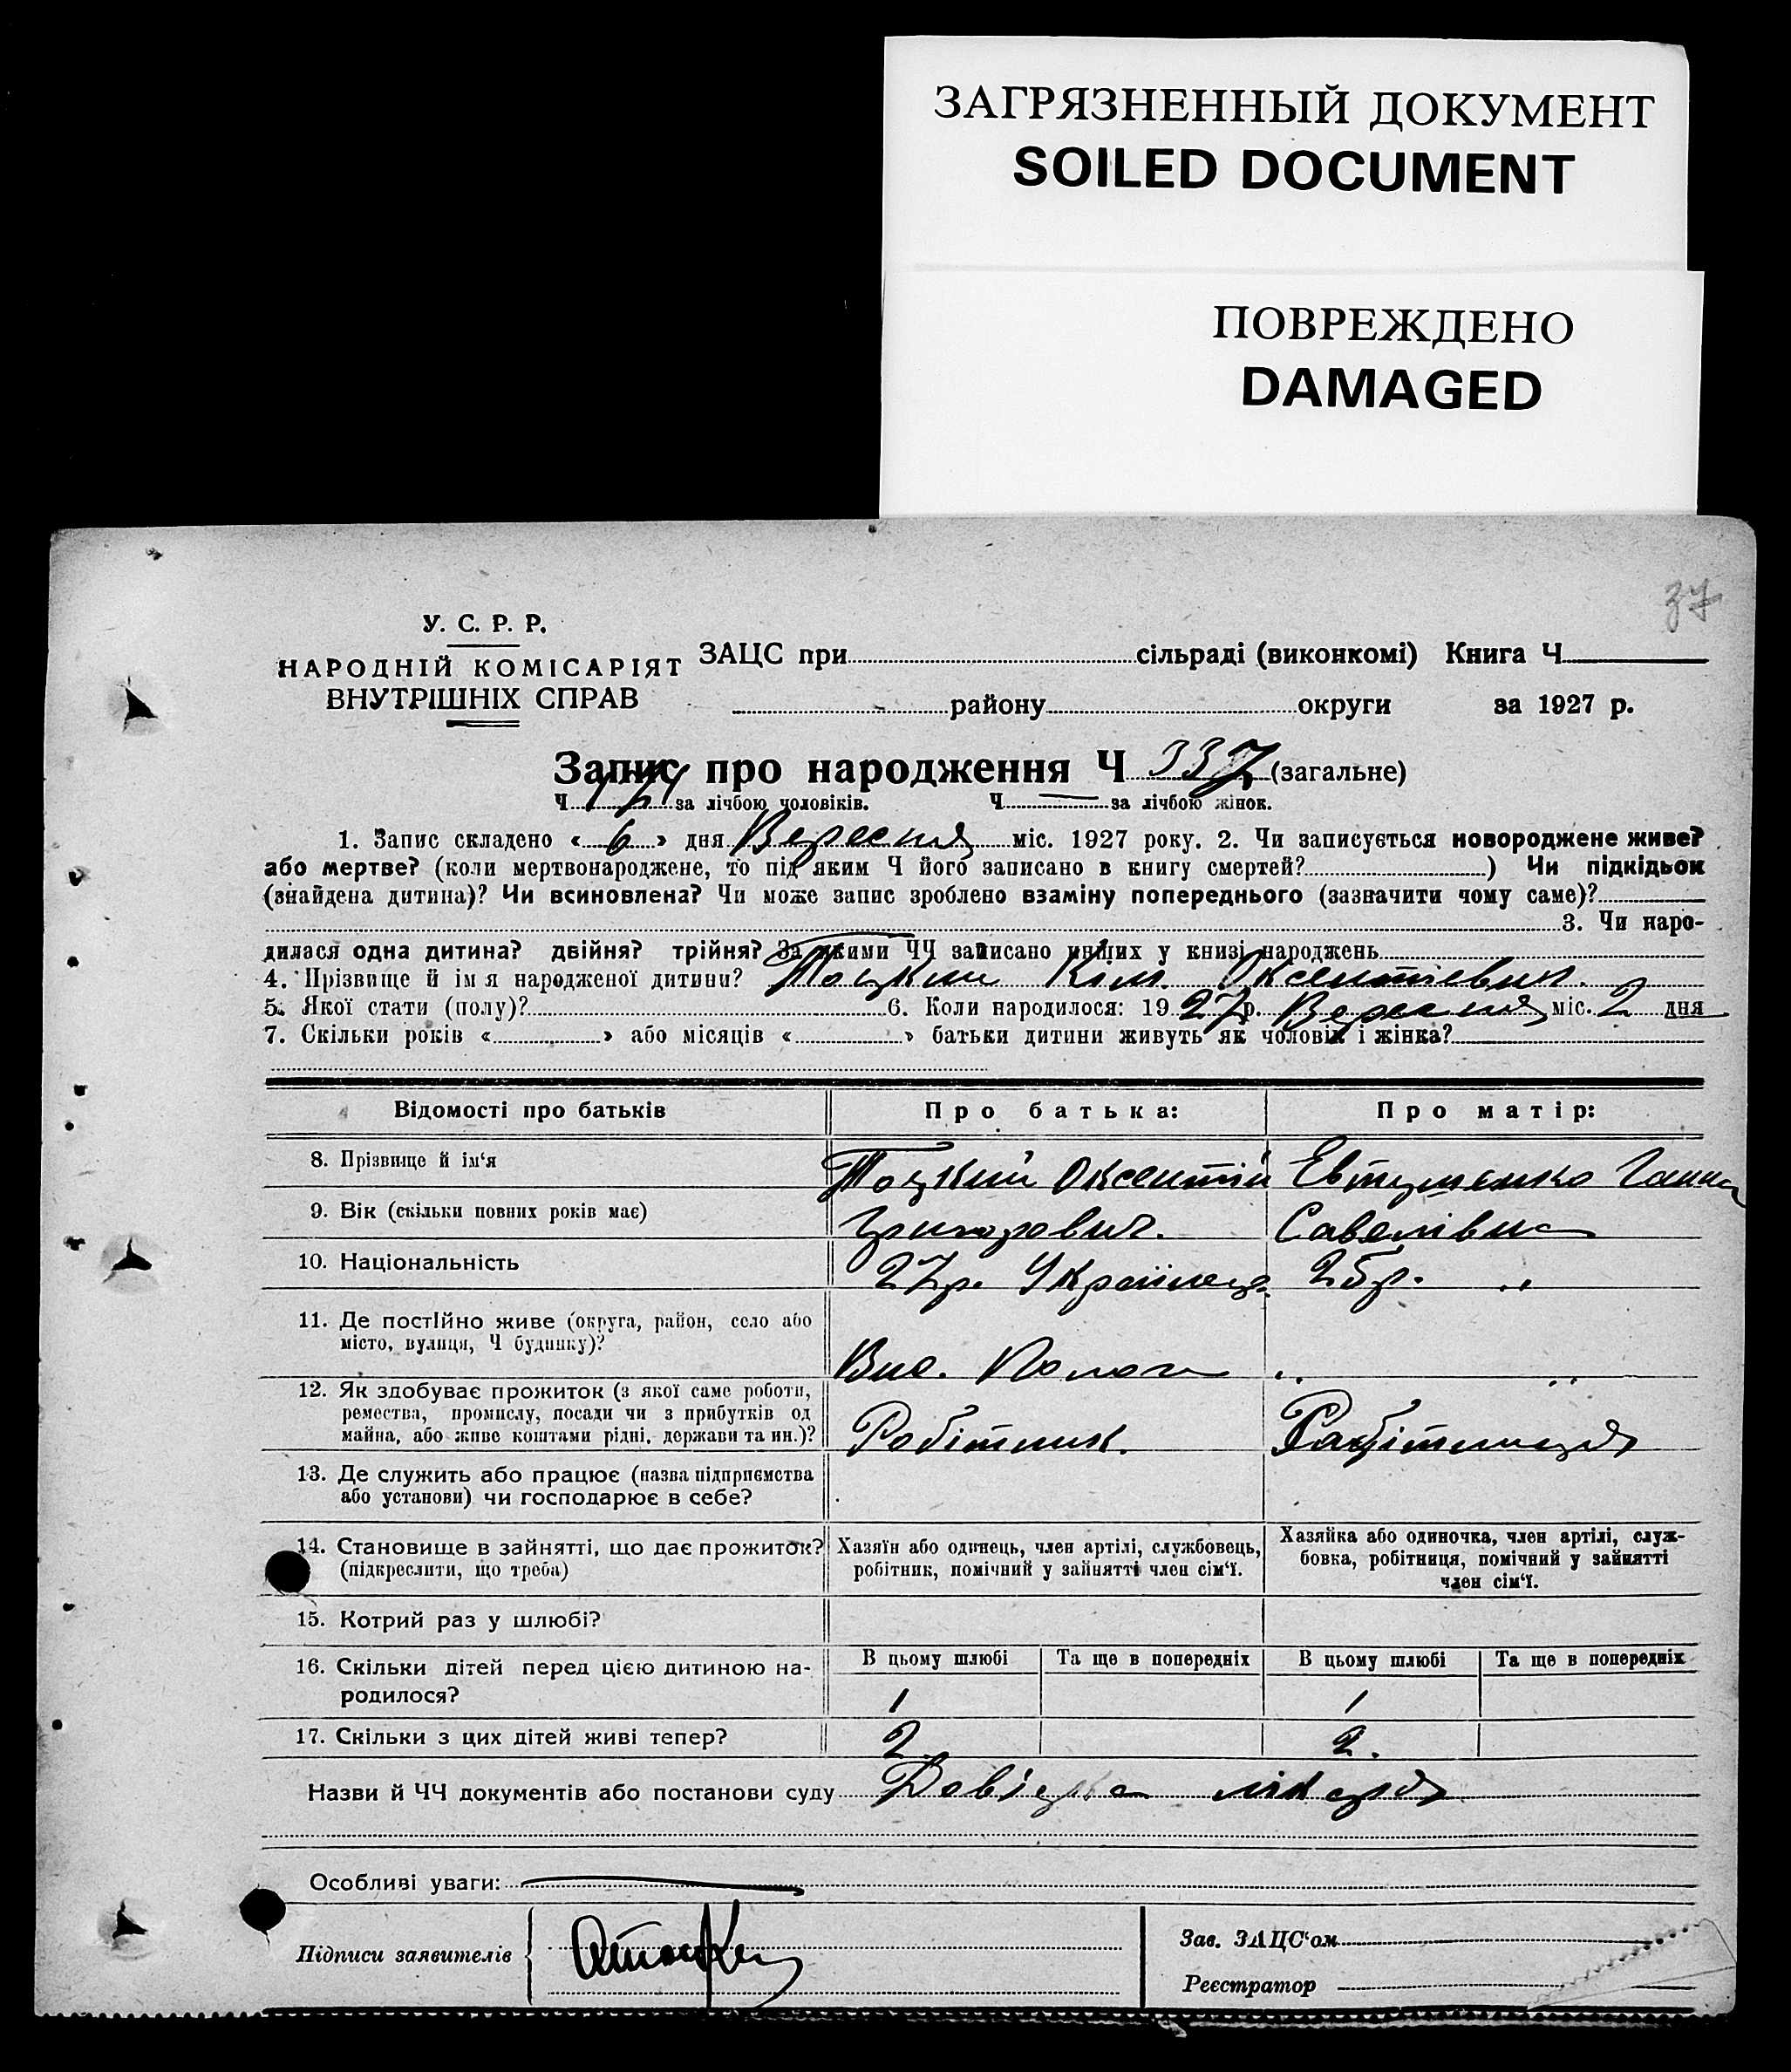 ЗАГРЯЗНЕННЫЙ ДОКУМЕНТ
SOILED DOCUMENT
ПОВРЕЖДЕНО
DAMAGED
37
У. С. Р. Р.
НАРОДНІЙ КОМІСАРІЯТ
ВНУТРІШНІХ СПРАВ
ЗАЦС при сільраді (виконкомі) Книга Ч
району округи за 1927 р.
Запис про народження Ч 337 (загальне)
Ч 174 за лічбою чоловіків. Ч — за лічбою жінок.
1. Запис складено « 6 » дня Вересня міс. 1927 року. 2. Чи записується новороджене живе?
або мертве? (коли мертвонароджене, то під яким Ч його записано в книгу смертей? ) Чи підкідьок
(знайдена дитина)? Чи всиновлена? Чи може запис зроблено взаміну попереднього (зазначити чому саме)?
3. Чи наро-
дилася одна дитина? двійня? трійня? За якими ЧЧ записано инших у книзі народжень
4. Прізвище й ім'я народженої дитини? Тоцкий Кім Оксентієвич.
5. Якої стати (полу)? 6. Коли народилося: 1927 р. Вересня міс. 2 дня
7. Скільки років « » або місяців « » батьки дитини живуть як чоловік і жінка?
Відомості про батьків Про батька: Про матір:
8. Прізвище й ім'я Тоцкий Оксентій Евтушенко Ганна
9. Вік (скільки повних років має) Григорович. Савелівна
10. Національність 27р. Українець 25р. "
11. Де постійно живе (округа, район, село або
місто, вулиця, Ч будинку)? Вис. Пологи " "
12. Як здобуває прожиток (з якої саме роботи,
ремества, промислу, посади чи з прибутків од
майна, або живе коштами рідні, держави та ин.)? Робітник. Робітниця
13. Де служить або працює (назва підприємства
або установи) чи господарює в себе?
14. Становище в зайнятті, що дає прожиток?
(підкреслити, що треба)
Хазяїн або одинець, член артілі, службовець,
робітник, помічний у зайнятті член сім'ї.
Хазяйка або одиночка, член артілі, служ-
бовка, робітниця, помічний у зайнятті
член сім'ї.
15. Котрий раз у шлюбі?
16. Скільки дітей перед цією дитиною на-
родилося?
В цьому шлюбі Та ще в попередніх В цьому шлюбі Та ще в попередніх
1 1
17. Скільки з цих дітей живі тепер? 2 2.
Назви й ЧЧ документів або постанови суду Довідка лікаря
Особливі уваги:
Підписи заявителів
Зав. ЗАЦС'ом
Реєстратор